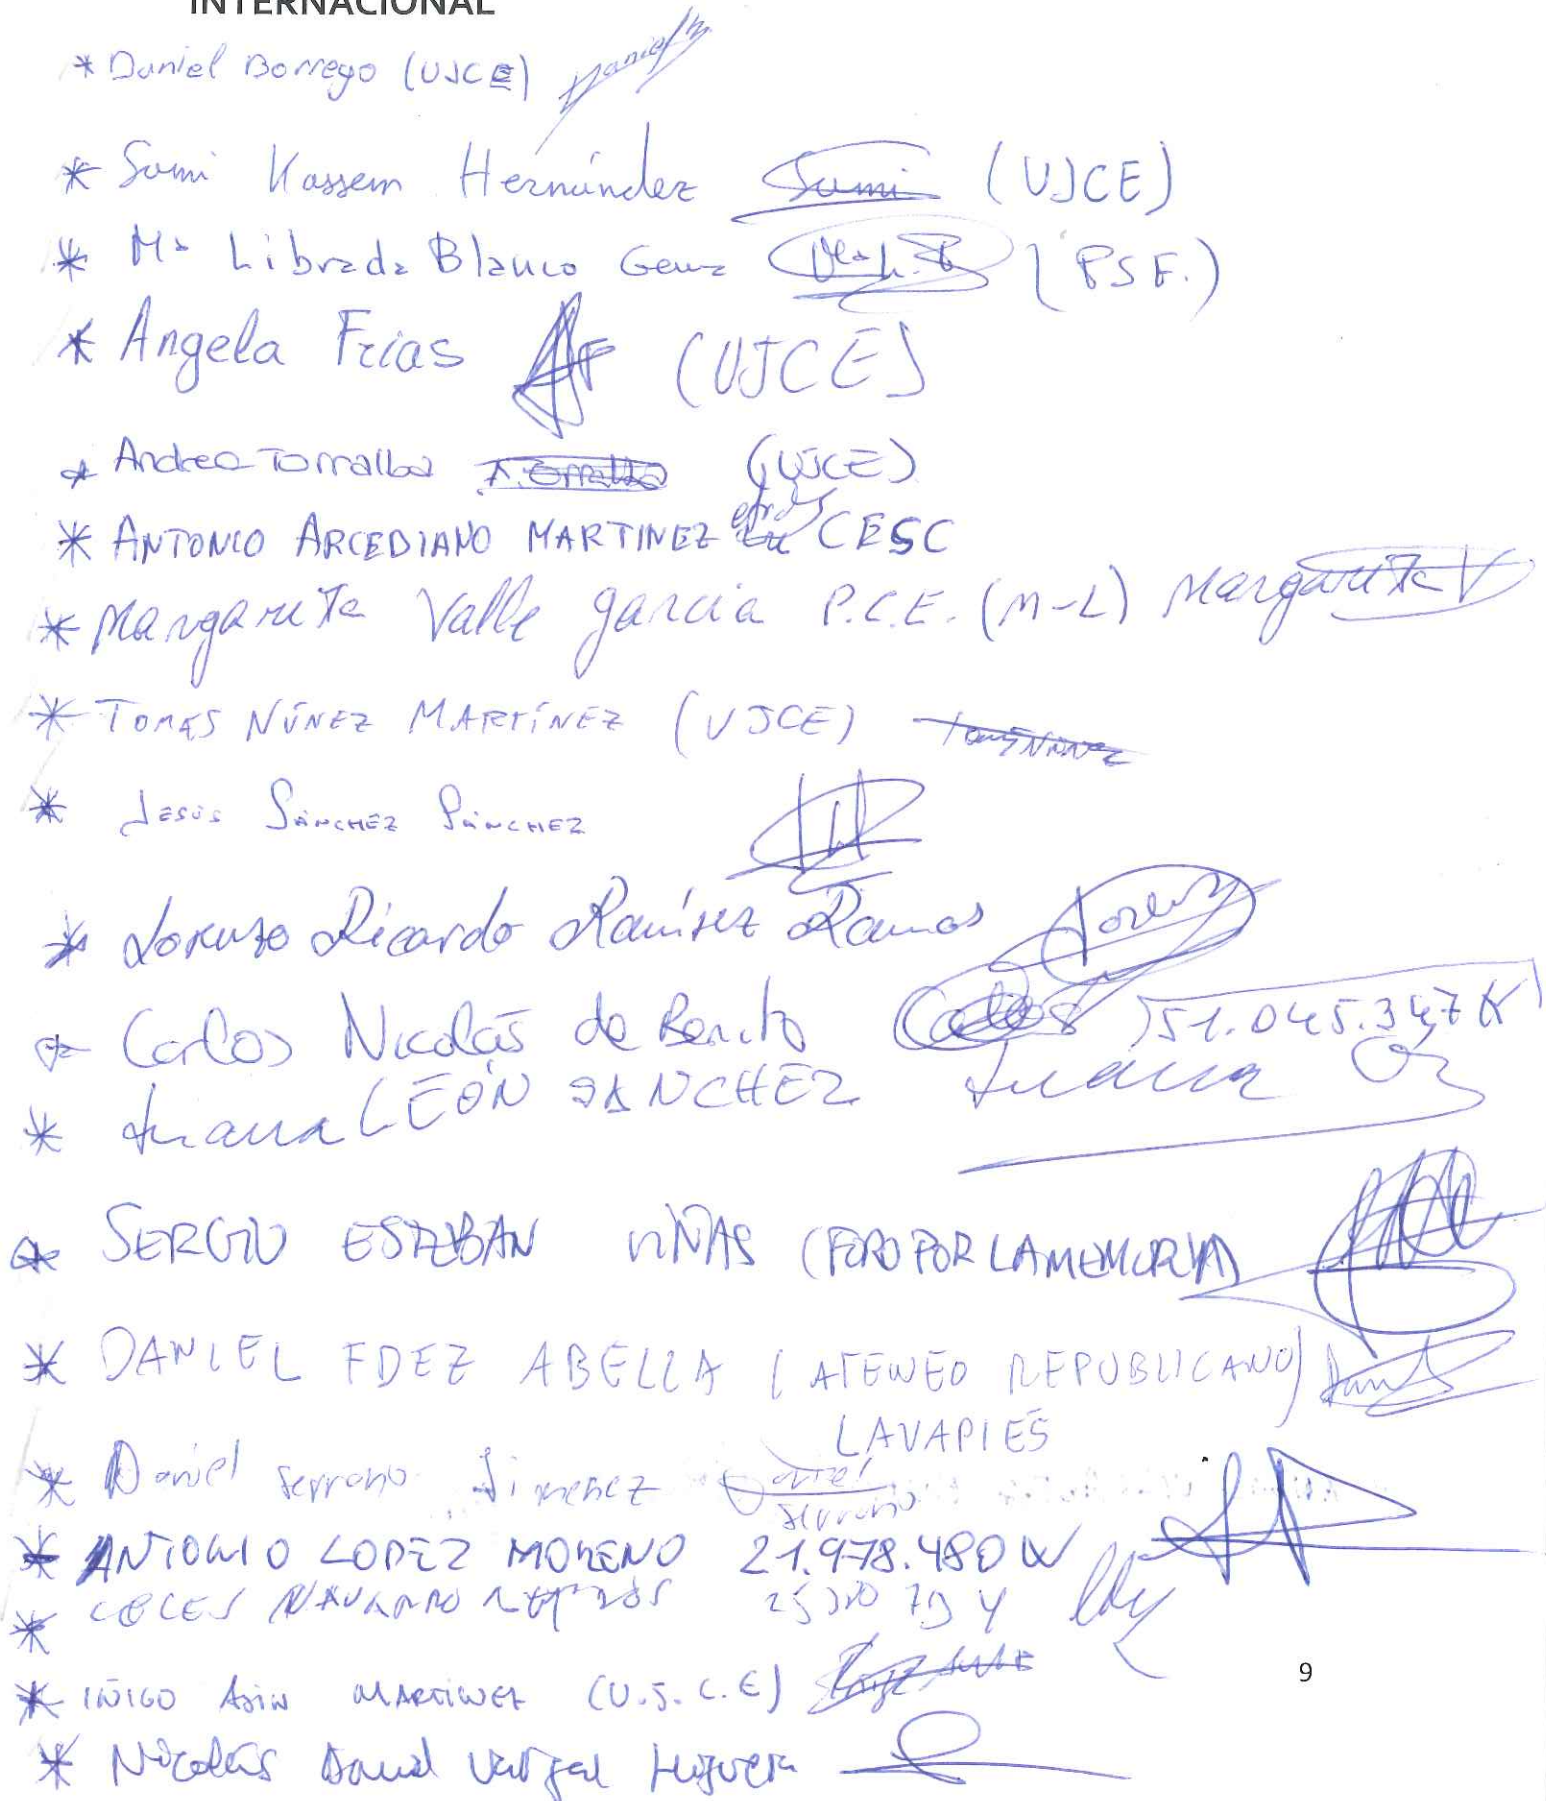 INTERNACIONAL
* Daniel Borrego (UJCE)
* Sami Kassem Hernández Sami (UJCE)
* Mª Librada Blanco (PSF.)
* Angela Frias (UJCE)
* Andrea Torralba A. Torralba (UJCE)
* ANTONIO ARCEDIANO MARTINEZ CESC
* Margarita Valle García P.C.E. (M-L) Margarita V
* TOMÁS NÚÑEZ MARTÍNEZ (UJCE)
* JESÚS SÁNCHEZ SÁNCHEZ
* Lorenzo Ricardo Ramírez Ramos
* Carlos Nicolás de Benito Carlos 51.045.347 K
* Juana LEÓN SANCHEZ Juana
* SERGIO ESTEBAN VIÑAS (FORO POR LA MEMORIA)
* DANIEL FDEZ ABELLA (ATENEO REPUBLICANO)
LAVAPIÉS
* Daniel Serrano Jimenez Daniel
Serrano
* ANTONIO LOPEZ MORENO 21.978.480 W
* NAVARRO
* IÑIGO MARTINEZ (U.J.C.E)
* Nicolás David
9